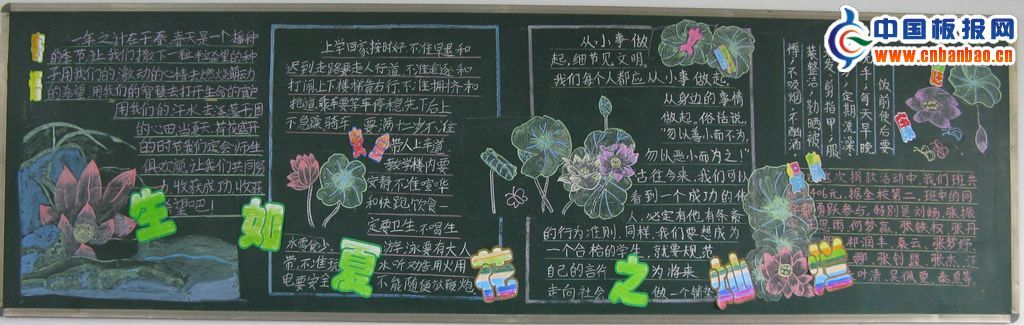 中国板报网
www.cnbanbao.cn
一年之计在于春,春天是一个播种
的季节,让我们撒下一粒粒希望的种
子用我们的激动的心情去燃烧
的希望,用我们的智慧去打开生命的窗户
用我们的汗水去
的心田
的时节我们定会师生
俱欢颜,让我们共同努
力,收获成功,收获
希望吧!
上学回家按时好,不准早退和
迟到,走路要走人行道,不准追逐和
打闹,上下楼梯靠右行,不准拥挤和
抢道,乘车要等车停稳,先下后上
不急躁,骑车要满十二岁,不准
带人上车道,
教学楼内要
安静,不准喧哗
和快跑,饮食一
定要卫生,不喝生
水零食少,游泳要有大人
带,不准玩水,听劝告用火用
电要安全,不能随便放鞭炮
从小事做
起,细节见文明。
我们每个人都应从小事做起,
从身边的事情
做起,俗话说,
“勿以善小而不为,
勿以恶小而为之!”
古往今来,我们可以
看到一个成功的
人,必定有他,有条紊
的行为准则,同样,我们要想成为
一个合格的学生,就要规范
自己的言行,为将来
走向社会做一个铺垫
饭前便后要
手,每天早晚
,定期洗澡
,剪指甲,服
装整洁,勤晒被
褥,不吸烟,不酗酒
次捐款活动中,我们班共
元,据全校第二,班中的同
踊跃参与,特别是刘畅,张振
雨,何梦蕊,张铁权,张丹
祁润丰,袁云,张梦婷
娜,张剑燚,张杰,江
叶清,吴佩雯,秦泉等
生如夏花之灿烂